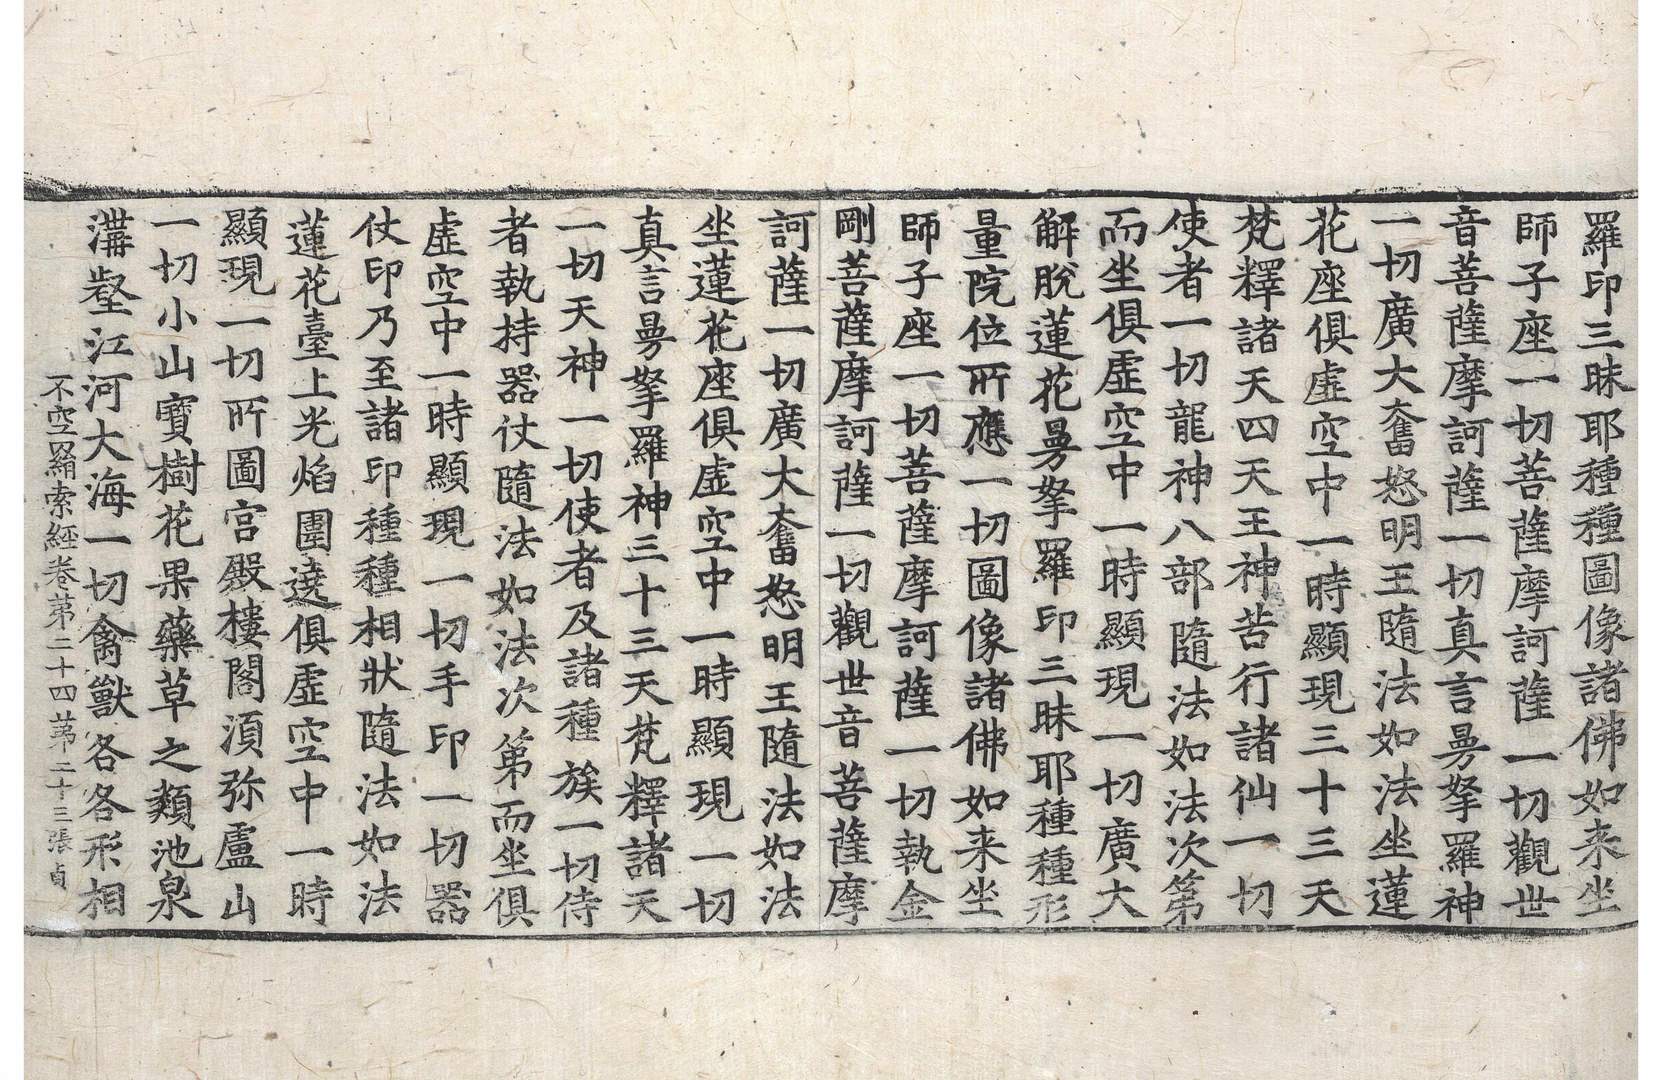 羅印三昧耶種種圖像諸佛如来坐
師子座一切菩薩摩訶薩一切觀世
音菩薩摩訶薩一切真言曼拏羅神
一切廣大奮怒明王隨法如法坐蓮
花座俱虛空中一時顯現三十三天
梵釋諸天四天王神苦行諸仙一切
使者一切龍神八部隨法如法次第
而坐俱虛空中一時顯現一切廣大
解脫蓮花曼拏羅印三昧耶種種形
量院位所應一切圖像諸佛如来坐
師子座一切菩薩摩訶薩一切執金
剛菩薩摩訶薩一切觀世音菩薩摩
訶薩一切廣大奮怒明王隨法如法
坐蓮花座俱虛空中一時顯現一切
真言曼拏羅神三十三天梵釋諸天
一切天神一切使者及諸種族一切侍
者執持器仗隨法如法次第而坐俱
虛空中一時顯現一切手印一切器
仗印乃至諸印種種相狀隨法如法
蓮花臺上光焰圍遶俱虛空中一時
顯現一切所圖宮殿樓閣湏弥盧山
一切小山寶樹花果藥草之類池泉
溝壑江河大海一切禽獸各各形相
不空羂索經卷第二十四 第二十三張 貞